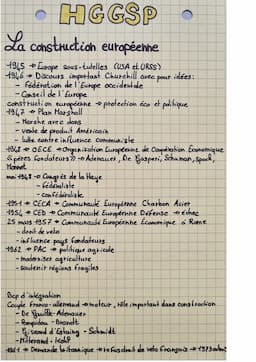 HGGSP
La construction européenne
1945 → Europe sous-tutelles (USA et URSS)
1946 → Discours important Churchill avec pour idées:
- Fédération de l'Europe occidentale
- Conseil de l'Europe
construction européenne → protection éco et politique
1947 → Plan Marshall
- Marche avec dons
- vente de produit Américain
- lutte contre influence communiste
1948 → OECE → Organisation Européenne de Coopération Économique
"pères fondateurs" → Adenauer, De Gasperi, Schuman, Spaak,
Monnet
mai 1948 → Congrès de la Haye
- fédéraliste
- confédéraliste
1951 → CECA → Communauté Européenne Charbon Acier
1954 → CED → Communauté Européenne Défense → échec
25 mars 1957 → Communauté Européenne Économique à Rome
- droit de veto
- influence pays fondateurs
1962 → PAC → politique agricole
- moderniser agriculture
- soutenir régions fragiles
d'intégration
Couple franco-allemand → moteur, rôle important dans construction
- De Gaulle-Adenauer
- Pompidou - Brandt
- Giscard d'Estaing - Schmidt
- Mitterrand - Kohl
1961 → Demande britannique → refus droit de veto Français →